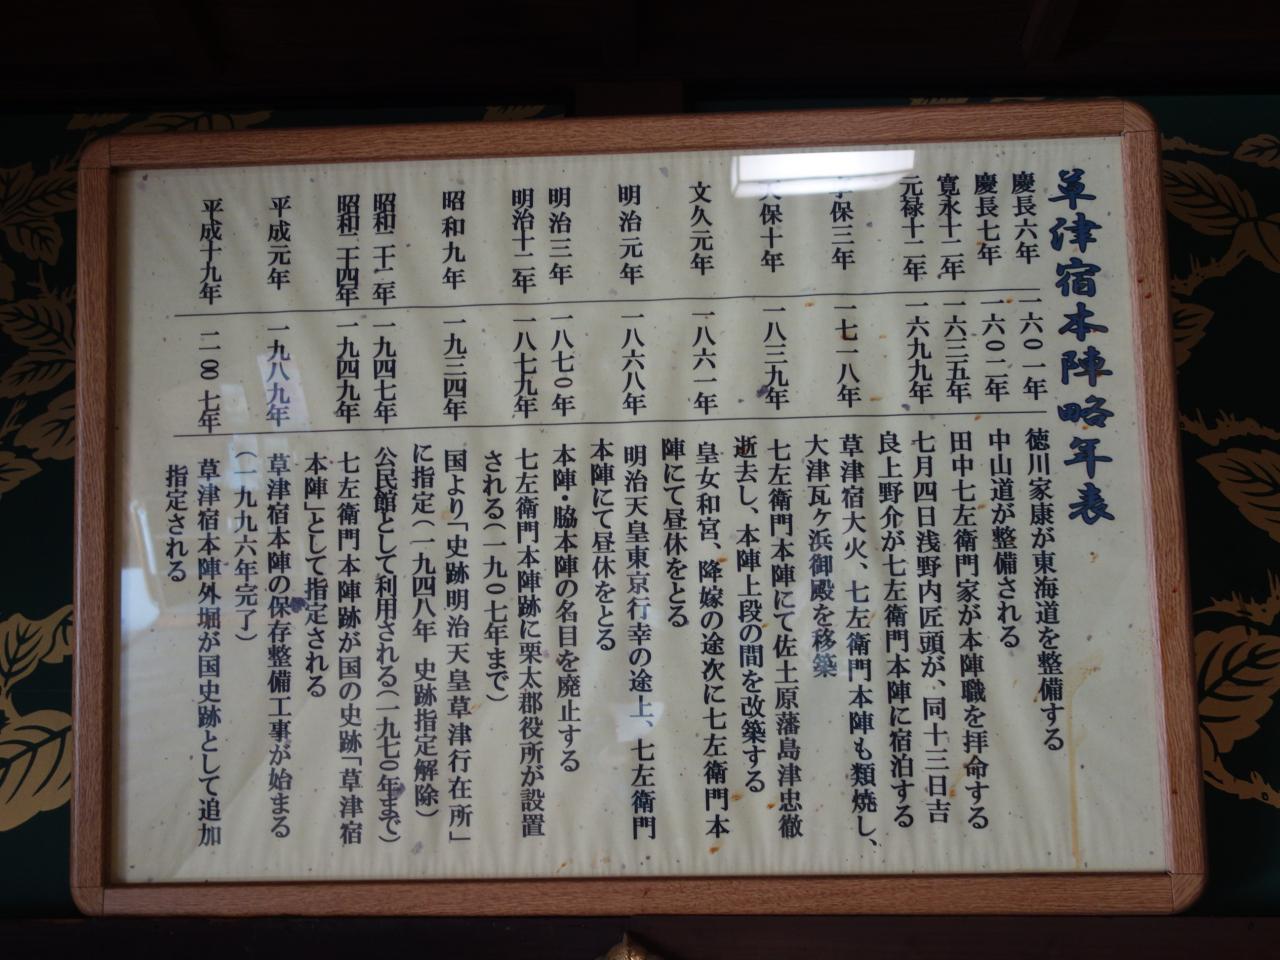 草津宿本陣略年表
慶長六年 一六〇一年 徳川家康が東海道を整備する
慶長七年 一六〇二年 中山道が整備される
寛永十二年 一六三五年 田中七左衛門家が本陣職を拝命する
元禄十二年 一六九九年 七月四日浅野内匠頭が、同十三日吉
良上野介が七左衛門本陣に宿泊する
保三年 一七一八年 草津宿大火、七左衛門本陣も類焼し、
大津瓦ヶ浜御殿を移築
保十年 一八三九年 七左衛門本陣にて佐土原藩島津忠徹
逝去し、本陣上段の間を改築する
文久元年 一八六一年 皇女和宮、降嫁の途次に七左衛門本
陣にて昼休をとる
明治元年 一八六八年 明治天皇東京行幸の途上、七左衛門
本陣にて昼休をとる
明治三年 一八七〇年 本陣・脇本陣の名目を廃止する
明治十二年 一八七九年 七左衛門本陣跡に栗太郡役所が設置
される(一九〇七年まで)
昭和九年 一九三四年 国より「史跡明治天皇草津行在所」
に指定(一九四八年 史跡指定解除)
昭和二十二年 一九四七年 公民館として利用される(一九七〇年まで)
昭和二十四年 一九四九年 七左衛門本陣跡が国の史跡「草津宿
本陣」として指定される
平成元年 一九八九年 草津宿本陣の保存整備工事が始まる
(一九九六年完了)
平成十九年 二〇〇七年 草津宿本陣外堀が国史跡として追加
指定される